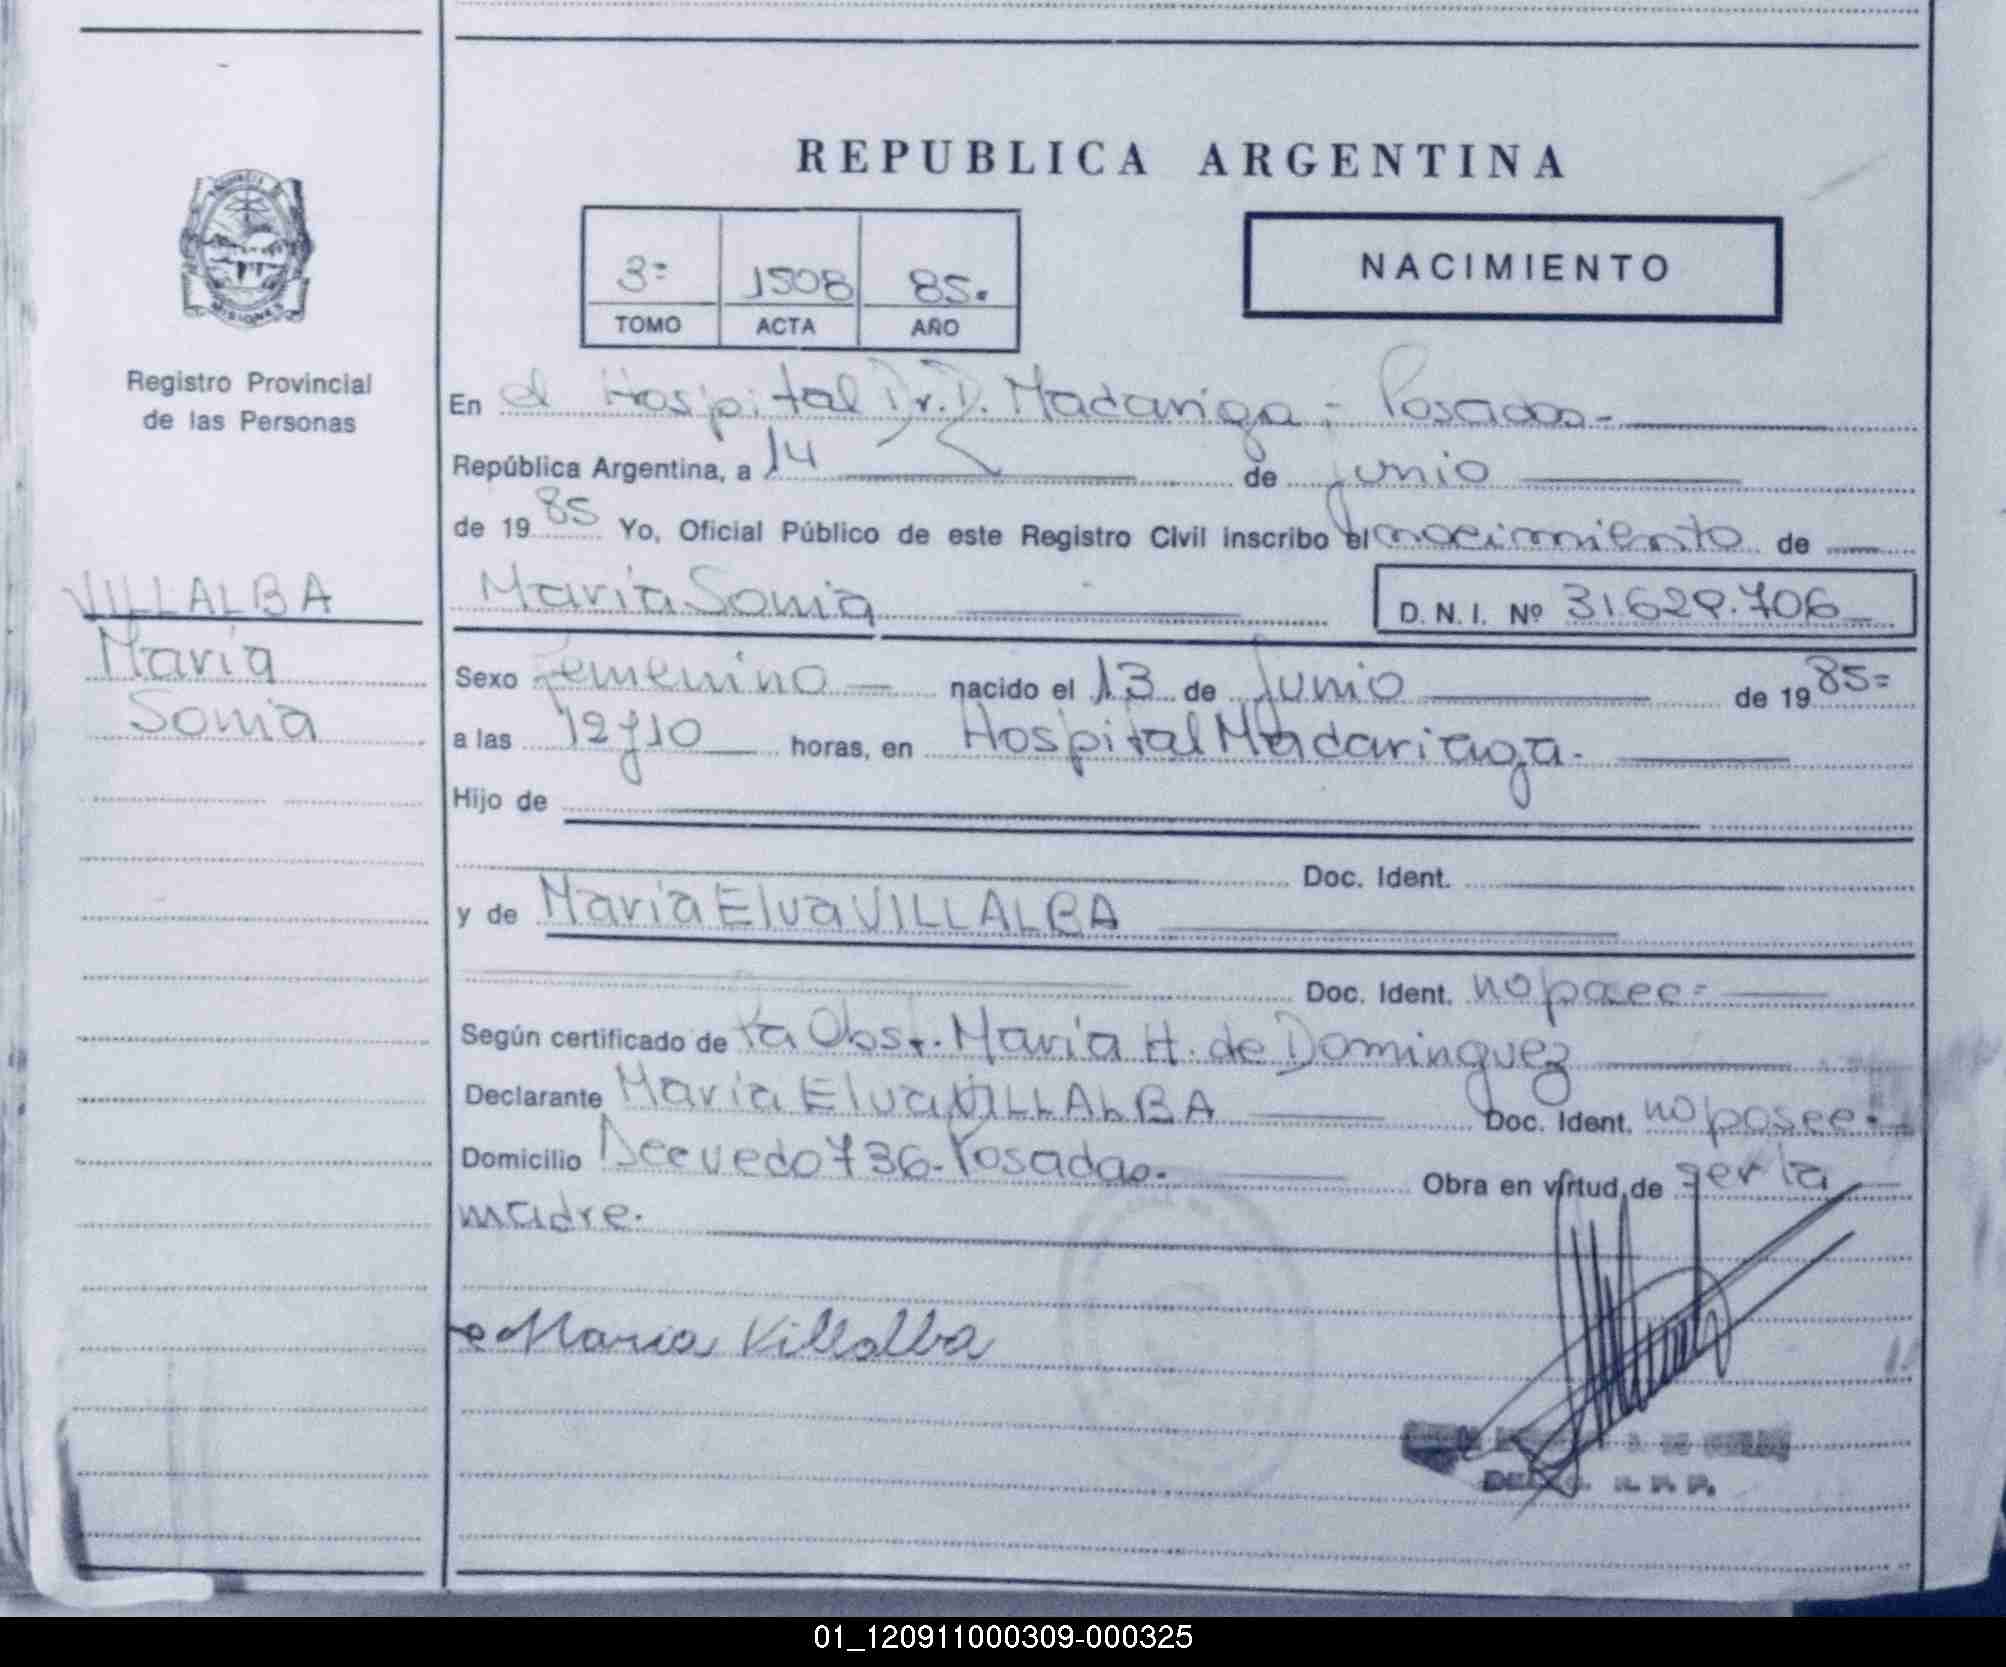 REPUBLICA ARGENTINA
3º 1508 85.
TOMO ACTA AÑO
NACIMIENTO
PROVINCIA DE
MISIONES
Registro Provincial
de las Personas
VILLALBA
María
Sonia
En el Hospital Dr. D. Madariga - Posadas -
República Argentina, a 14 de junio
de 19 85 Yo, Oficial Público de este Registro Civil inscribo el nacimiento de
María Sonia D. N. I. Nº 31629.706
Sexo femenino nacido el 13 de junio de 19 85=
a las 12 y 10 horas, en Hospital Madariaga.
Hijo de
Doc. Ident.
y de María Elva VILLALBA
Doc. Ident. no posee=
Según certificado de la Obst. María H. de Dominguez
Declarante María Elva VILLALBA Doc. Ident. no posee.
Domicilio 736. Posadas. Obra en virtud de ser la
madre.
Maria Villalba
R. P. P.
01_120911000309-000325